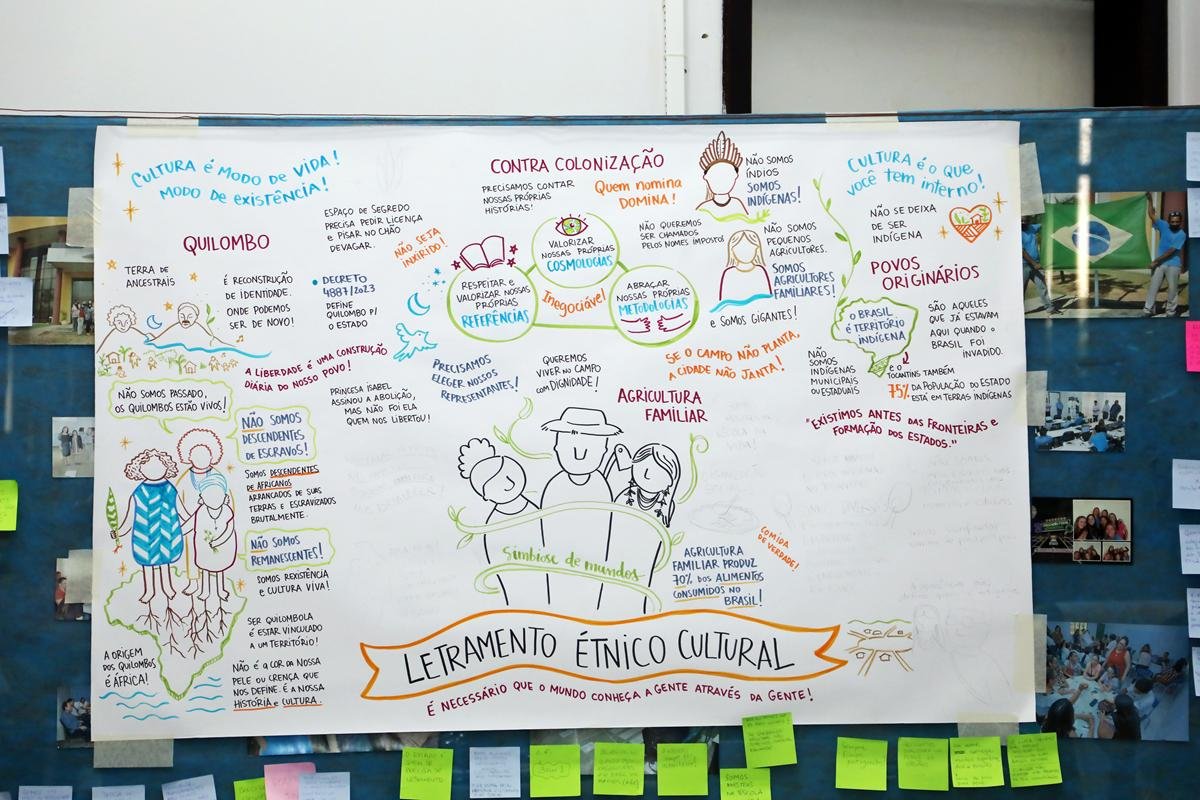 CULTURA É MODO DE VIDA!
MODO DE EXISTÊNCIA!
QUILOMBO
TERRA DE
ANCESTRAIS
É RECONSTRUÇÃO
DE IDENTIDADE.
ONDE PODEMOS
SER DE NOVO!
ESPAÇO DE SEGREDO
PRECISA PEDIR LICENÇA
E PISAR NO CHÃO
DEVAGAR.
NÃO SEJA
INXIRIDO!
• DECRETO
4887/2023
DEFINE
QUILOMBO P/
O ESTADO
A LIBERDADE É UMA CONSTRUÇÃO
DIÁRIA DO NOSSO POVO!
PRINCESA ISABEL
ASSINOU A ABOLIÇÃO,
MAS NÃO FOI ELA
QUEM NOS LIBERTOU!
NÃO SOMOS PASSADO,
OS QUILOMBOS ESTÃO VIVOS!
NÃO SOMOS
DESCENDENTES
DE ESCRAVOS!
SOMOS DESCENDENTES
DE AFRICANOS
ARRANCADOS DE SUAS
TERRAS E ESCRAVIZADOS
BRUTALMENTE.
NÃO SOMOS
REMANESCENTES!
SOMOS REXISTÊNCIA
E CULTURA VIVA!
SER QUILOMBOLA
É ESTAR VINCULADO
A UM TERRITÓRIO!
NÃO É A COR DA NOSSA
PELE OU CRENÇA QUE
NOS DEFINE. É A NOSSA
HISTÓRIA E CULTURA.
A ORIGEM
DOS QUILOMBOS
É ÁFRICA!
CONTRA COLONIZAÇÃO
PRECISAMOS CONTAR
NOSSAS PRÓPRIAS
HISTÓRIAS!
Quem nomina
DOMINA!
VALORIZAR
NOSSAS PRÓPRIAS
COSMOLOGIAS
RESPEITAR E
VALORIZAR NOSSAS
PRÓPRIAS
REFERÊNCIAS
Inegociável!
ABRAÇAR
NOSSAS PRÓPRIAS
METODOLOGIAS
NÃO QUEREMOS
SER CHAMADOS
PELOS NOMES IMPOSTO!
NÃO SOMOS
ÍNDIOS
SOMOS
INDÍGENAS!
NÃO SOMOS
PEQUENOS
AGRICULTORES.
SOMOS
AGRICULTORES
FAMILIARES!
E SOMOS GIGANTES!
PRECISAMOS
ELEGER NOSSOS
REPRESENTANTES!
QUEREMOS
VIVER NO CAMPO
COM DIGNIDADE!
SE O CAMPO NÃO PLANTA,
A CIDADE NÃO JANTA!
AGRICULTURA
FAMILIAR
Simbiose de mundos
COMIDA
DE VERDADE!
AGRICULTURA
FAMILIAR PRODUZ
70% DOS ALIMENTOS
CONSUMIDOS NO
BRASIL!
CULTURA É O QUE
VOCÊ TEM INTERNO!
NÃO SE DEIXA
DE SER
INDÍGENA
POVOS
ORIGINÁRIOS
O BRASIL
É TERRITÓRIO
INDÍGENA
SÃO AQUELES
QUE JÁ ESTAVAM
AQUI QUANDO O
BRASIL FOI
INVADIDO.
NÃO
SOMOS
INDÍGENAS
MUNICIPAIS
OU ESTADUAIS
E O
TOCANTINS TAMBÉM
75% DA POPULAÇÃO DO ESTADO
ESTÁ EM TERRAS INDÍGENAS
"EXISTIMOS ANTES DAS FRONTEIRAS E
FORMAÇÃO DOS ESTADOS."
LETRAMENTO ÉTNICO CULTURAL
É NECESSÁRIO QUE O MUNDO CONHEÇA A GENTE ATRAVÉS DA GENTE!